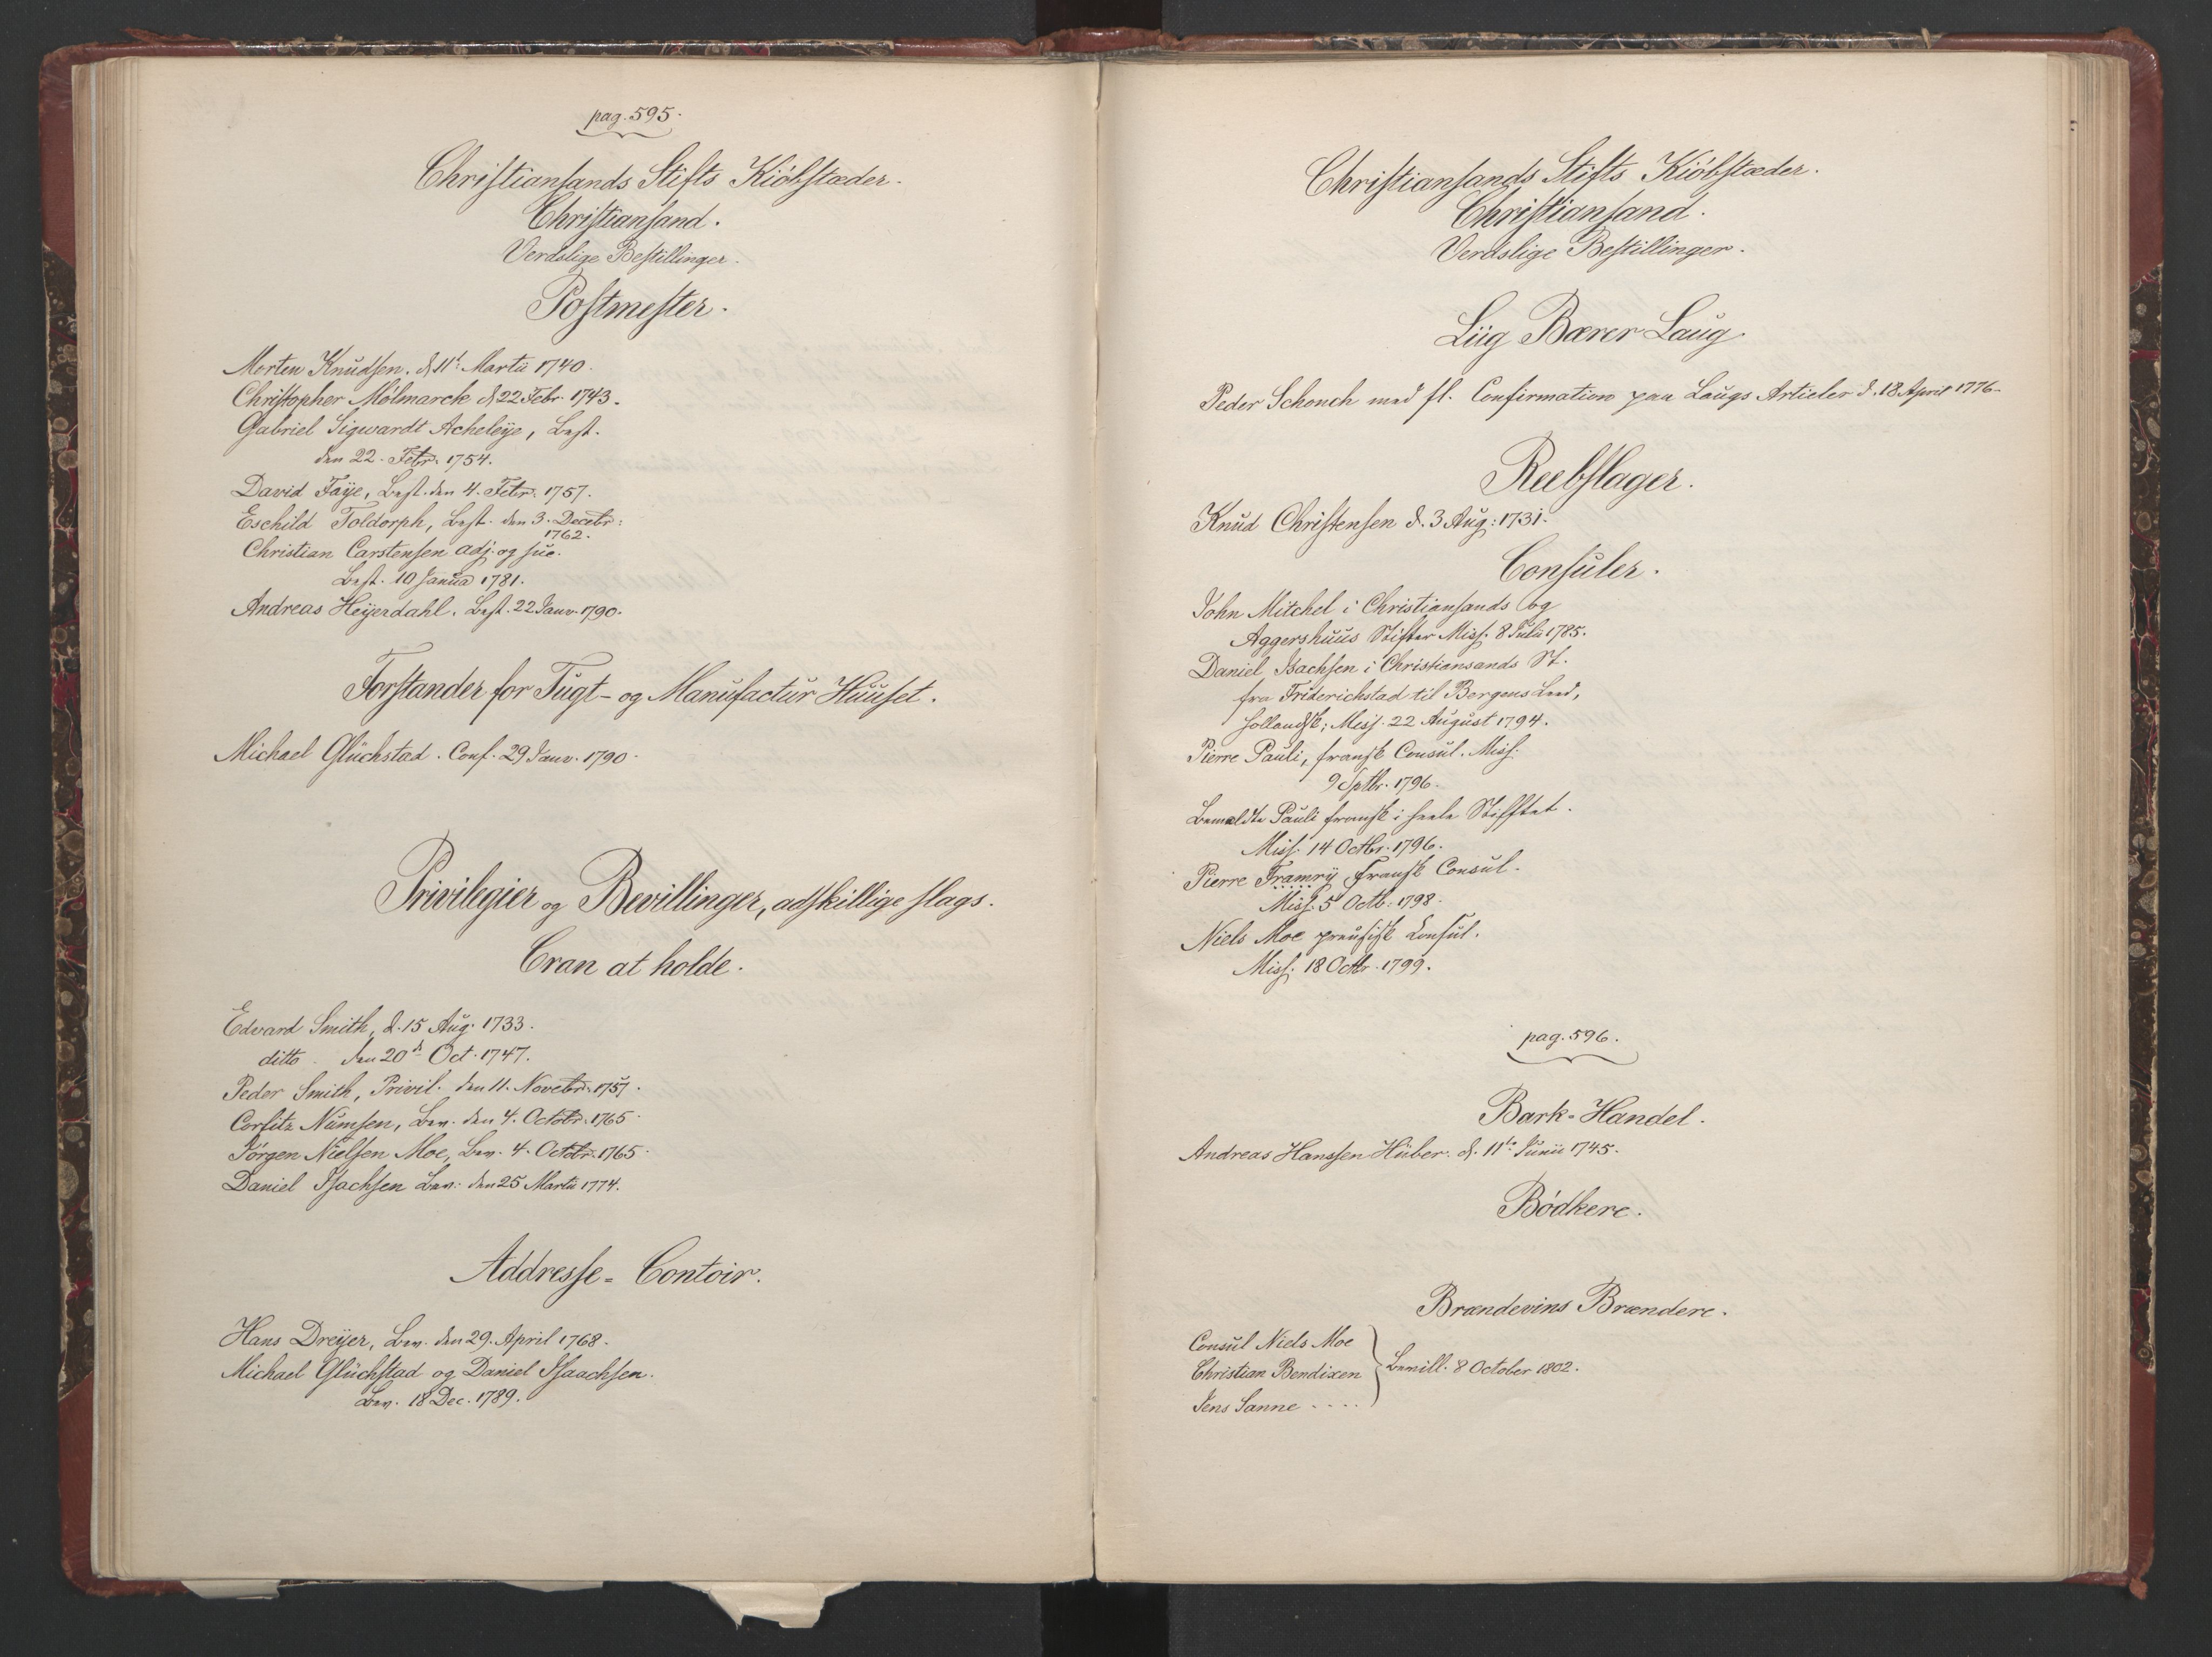 pag. 595.
Christiansands Stifts Kiöbstæder.
Christiansand.
Verdslige Bestillinger.
Postmester.
Morten Knudsen. d 11t Martii 1740.
Christopher Mølmarck d 22 Febr. 1743.
Gabriel Sigwardt Acheleÿe, Best.
den 22. Febr. 1754.
David Faÿe, Best. den 4. Febr. 1757.
Eschild Toldorph, Best. den 3. Decebr:
1762.
Christian Carstensen adj. og suc.
Best. 10 Janua 1781.
Andreas Heÿerdahl. Best. 22 Janv. 1790.
Forstander for Tugt- og Manufactur Huuset.
Michael Glückstad. Conf. 29 Janv. 1790.
Privilegier og Bevillinger, adskillige slags.
Cran at holde.
Edvard Smith, d. 15 Aug. 1733.
ditto . den 20d Oct. 1747.
Peder Smith, Privil. den 11. Novebr. 1757.
Corfitz Numsen, Bev. den 4. Octobr. 1765.
Jörgen Nielsen Moe, Bev. 4. Octobr. 1765.
Daniel Isachsen Bev: den 25 Martii 1774.
Addresse= Contoir.
Hans Dreÿer, Bev. den 29. April 1768.
Michael Glückstad og Daniel Isaachsen.
Bev. 18 Dec. 1789.
Christiansands Stifts Kiöbstæder.
Christiansand.
Verdslige Bestillinger.
Liig Bærer Laug.
Peder Schonch med fl. Confirmation paa Laugs Articler d. 18 April 1776.
Reebslager.
Knud Christensen d. 3 Aug: 1731.
Consuler.
John Mitchel i Christiansands og
Aggershuus Stifter Miss. 8 Julii 1785.
Daniel Isachsen i Christiansands St.
fra Friderichstad til Bergens Leed,
hollandsk; Miss. 22 August 1794.
Pierre Pauli, fransk Consul. Miss.
9 Sptbr. 1796.
Bemeldte Pauli fransk i heele Stifftet.
Miss. 14 Octbr. 1796.
Pierre Framrÿ fransk Consul.
Miss. 5 Octb: 1798.
Niels Moe preusisk Consul.
Miss. 18 Octbr. 1799.
pag. 596.
Bark=Handel.
Andreas Hanssen Hüber. d. 11te Junii 1745.
Bödkere.
Brændevins Brændere.
Consul Niels Moe
Christian Bendixen Bevill. 8 October 1802.
Jens Sanne - - - -